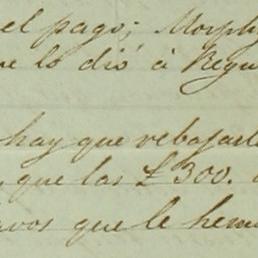 el pago; Morphy
lo dió á Regu
hay que rebajarle
que las £300.
que le hem